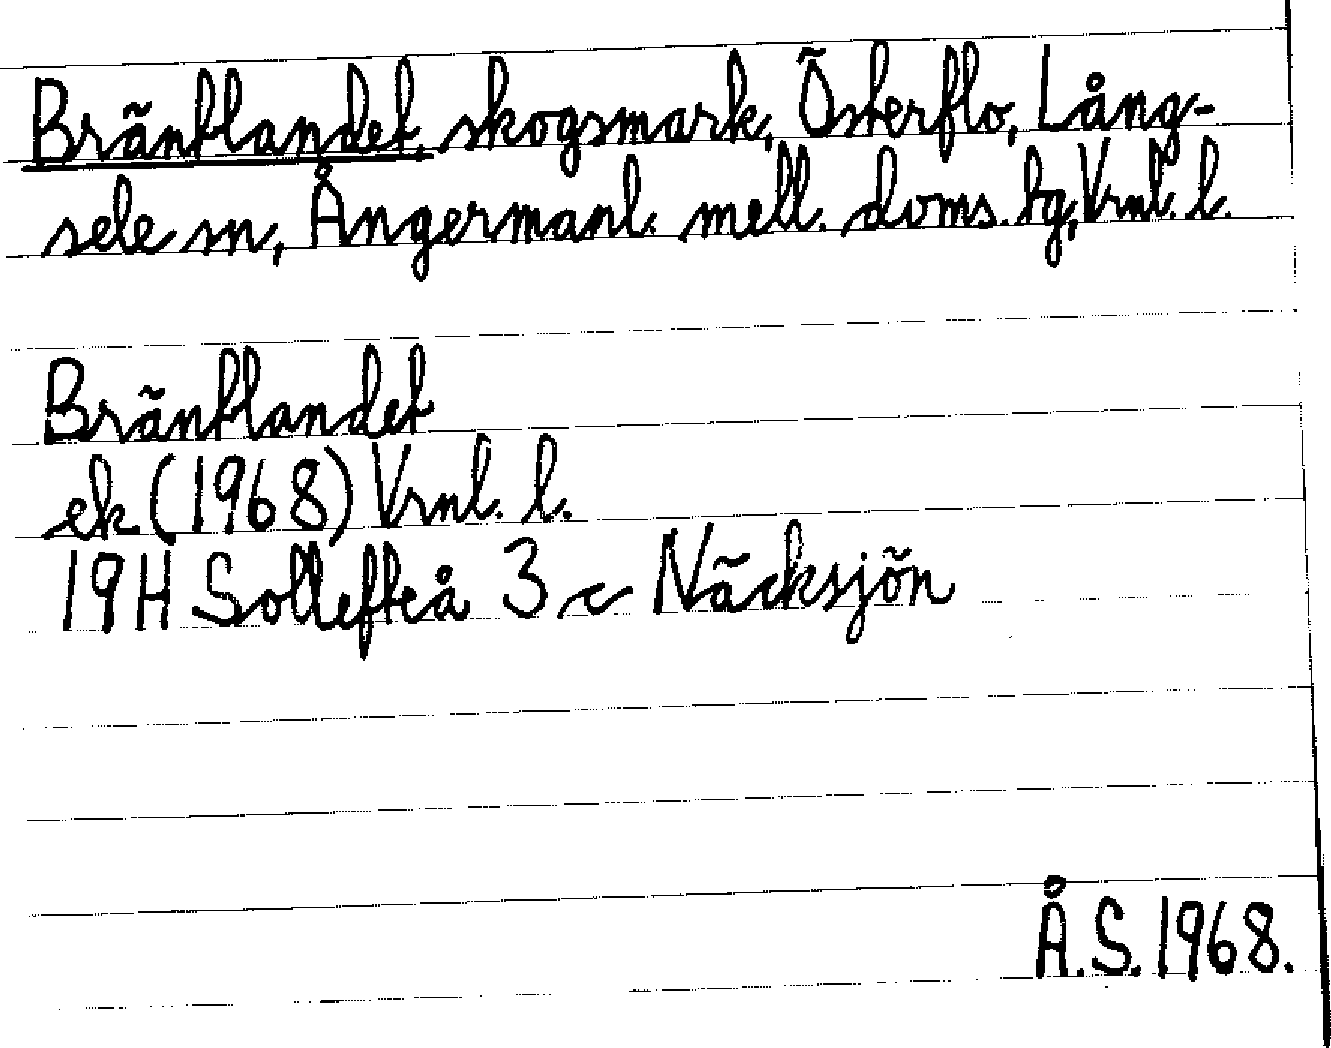 Bräntlandet, skogsmark, Österflo, Lång-
sele sn, Ångermanl. mell. doms. tg, Vrnl. l.
Bräntlandet
ek (1968) Vrnl. l.
19H Sollefteå 3 c Näcksjön
Å.S. 1968.